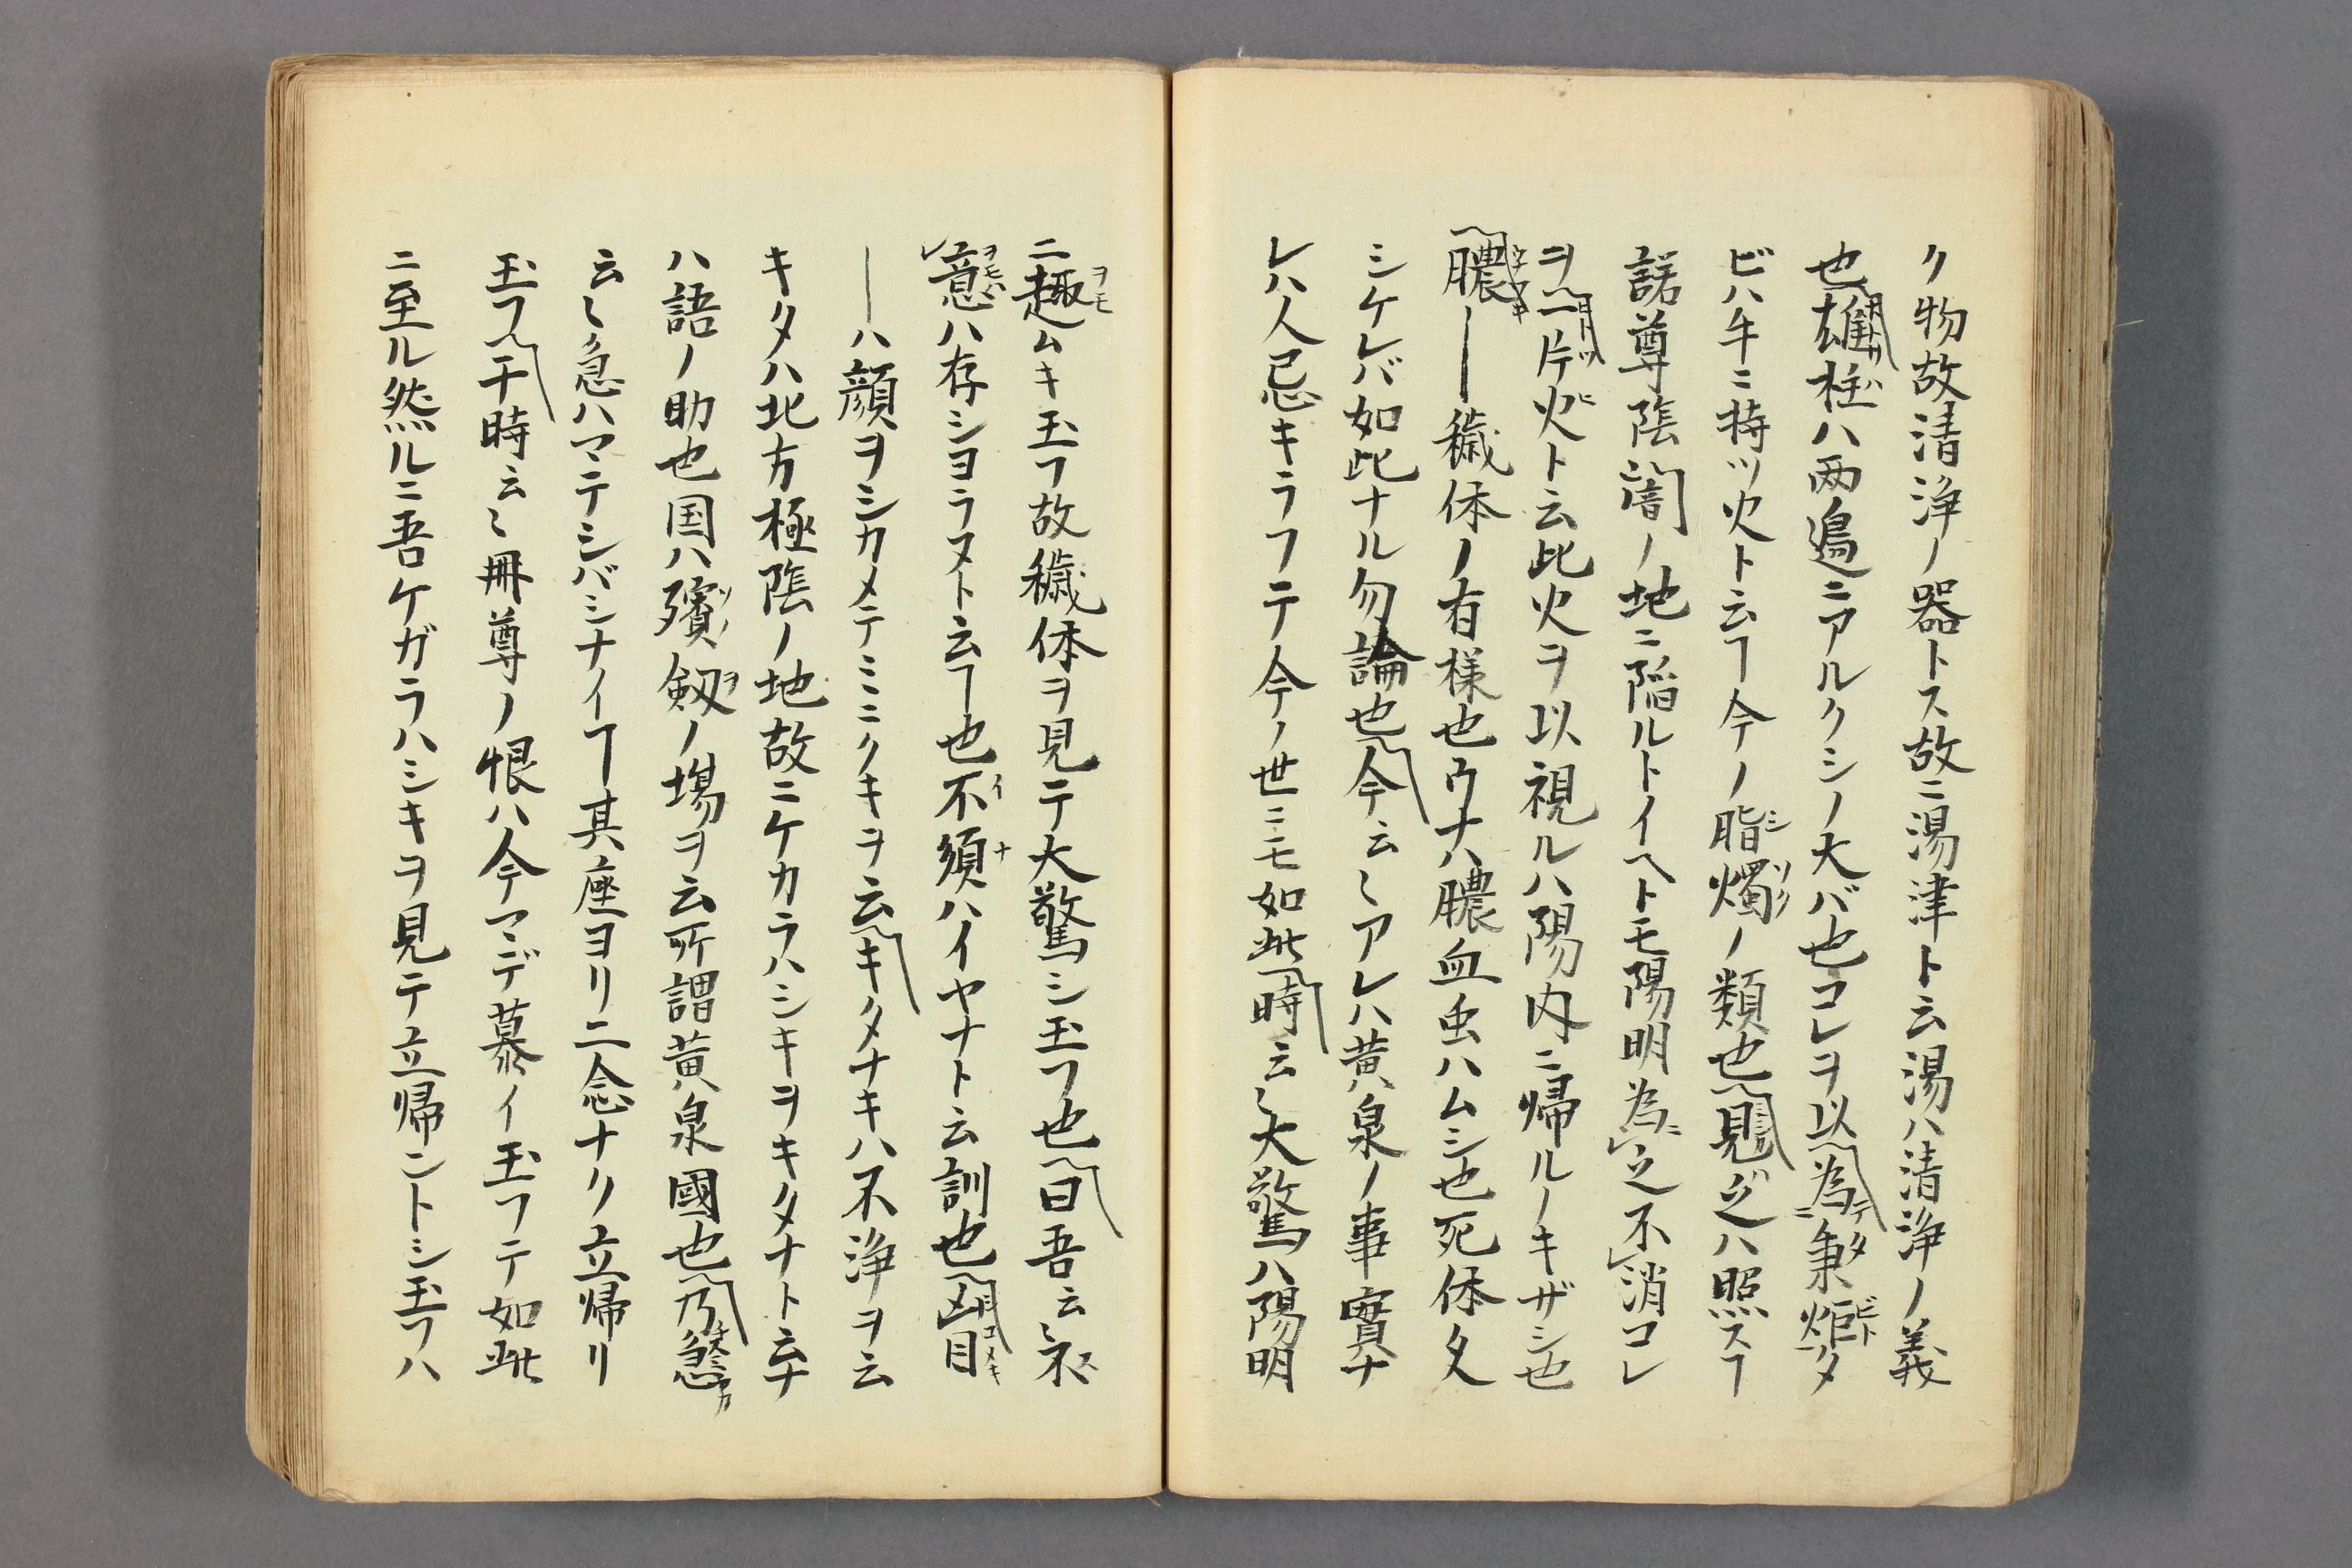 ク物故清浄ノ器トス故ニ湯津ト云湯ハ清浄ノ義
也雄柱ハ両邉ニアルクシノ大バ也コレヲ以為秉炬タ
ビハ手ニ持ツ火ト云ヿ今ノ脂燭ノ類也見之ハ照スヿ
諾尊陰闇ノ地ニ陥ルトイヘトモ陽明為之不消コレ
ヲ一片火ト云此火ヲ以視ルハ陽内ニ帰ルノキザシ也
膿―穢体ノ有様也ウナハ膿血虫ハムシ也死体タヾ
シケレバ如此ナル勿論也今云〻アレハ黄泉ノ事實ナ
レハ人忌キラフテ今ノ世ニモ如此時云〻大驚ハ陽明
ニ趣ムキ玉フ故穢体ヲ見テ大驚シ玉フ也曰吾云〻不
意ハ存シヨラヌト云ヿ也不須ハイヤナト云訓也凶目
―ハ顔ヲシカメテミニクキヲ云キタナキハ不浄ヲ云
キタハ北方極陰ノ地故ニケカラハシキヲキタナト云ナ
ハ語ノ助也国ハ殯斂ノ場ヲ云所謂黄泉國也乃急
云〻急ハマテシバシナイヿ其座ヨリ二念ナク立帰リ
玉フ于時云〻冊尊ノ恨ハ今マデ慕イ玉フテ如此
ニ至ル然ルニ吾ケガラハシキヲ見テ立帰ントシ玉フハ